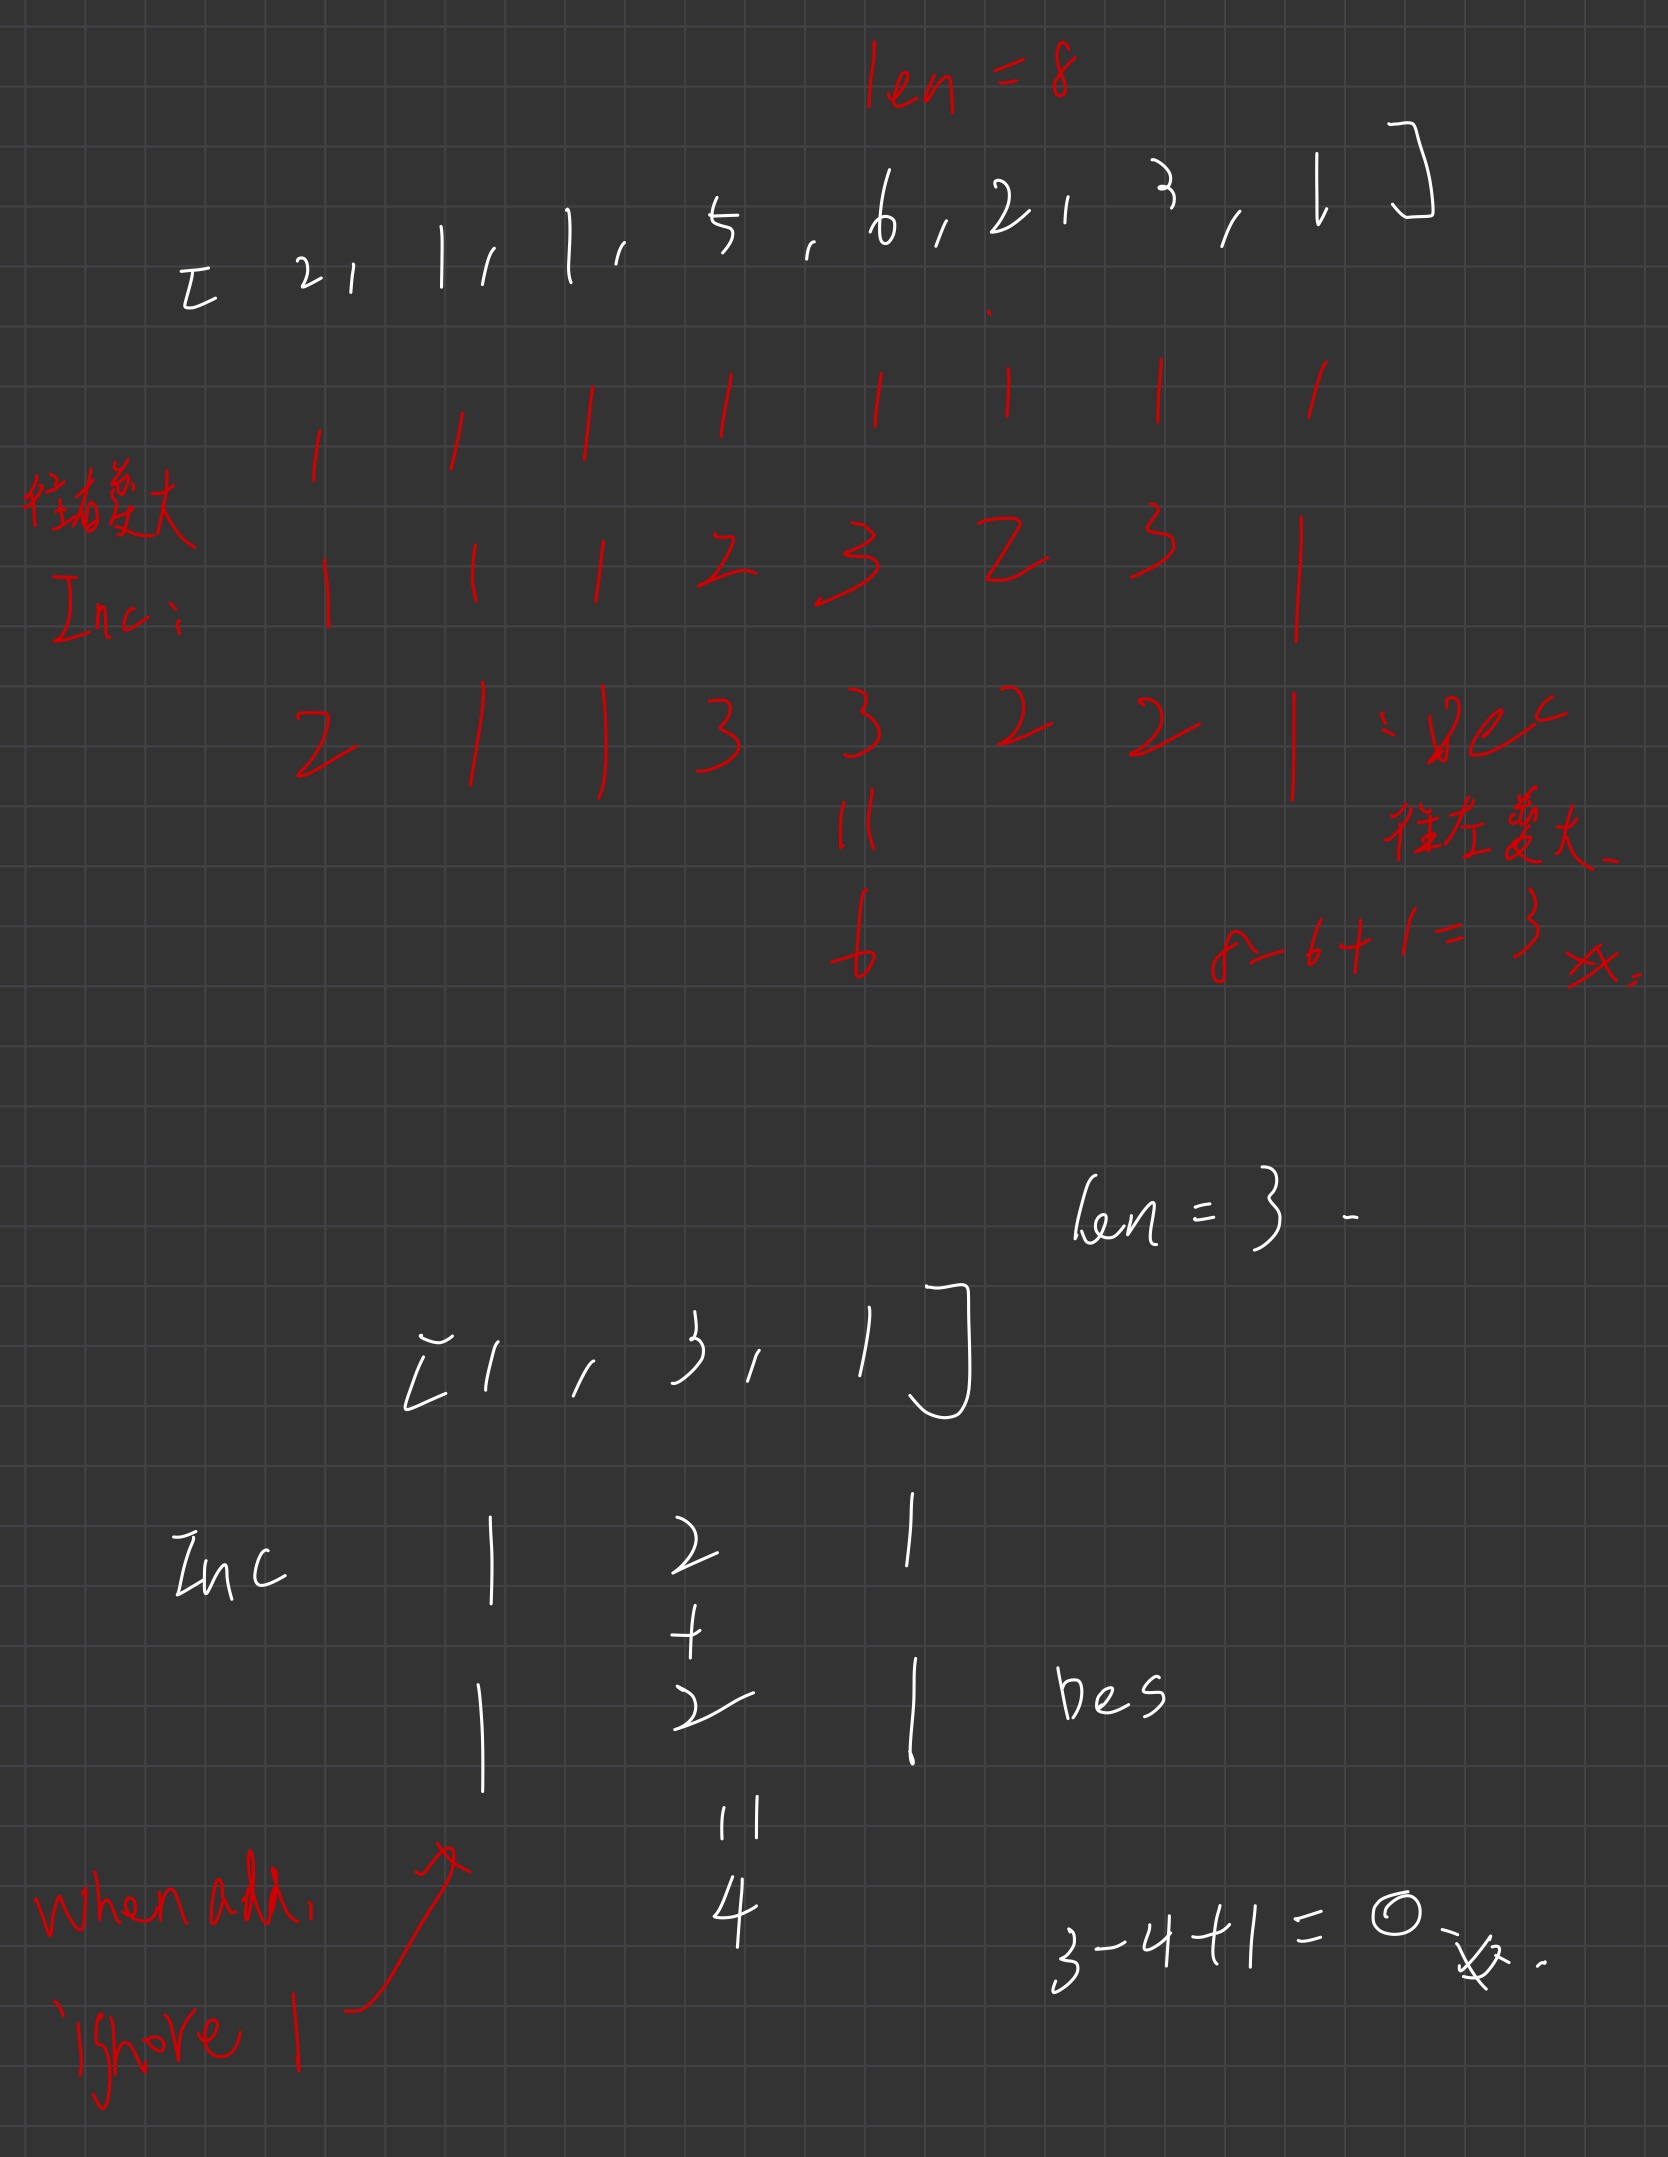 len = 8
[ 2, 1, 1, 5, 6, 2, 3, 1 ]
1 1 1 1 1 1 1 1
往右變大
Inc: 1 1 1 2 3 2 3 1
2 1 1 3 3 2 2 1 : Dec
往左變大
6
8 - 6 + 1 = 3
len = 3
[ 1, 3, 1 ]
Inc 1 2 1
+
1 2 1 Des
4
when add,
3 - 4 + 1 = 0
ignore 1